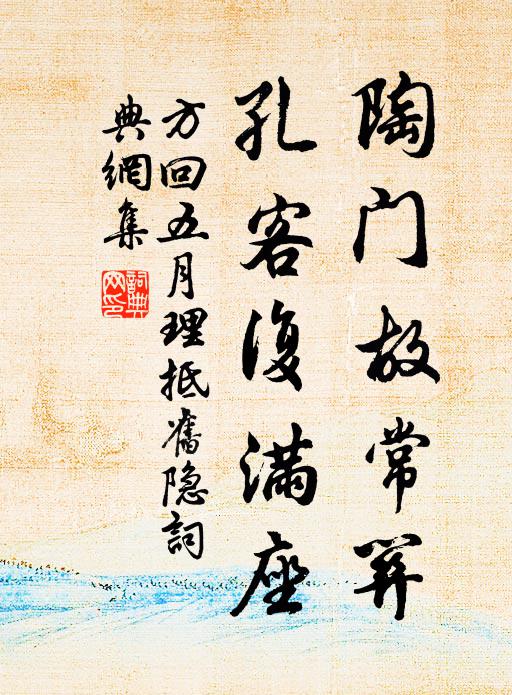 陶门故常關
孔客復滿座
方回五月理抵舊隐詞
典網集
詞典
网印